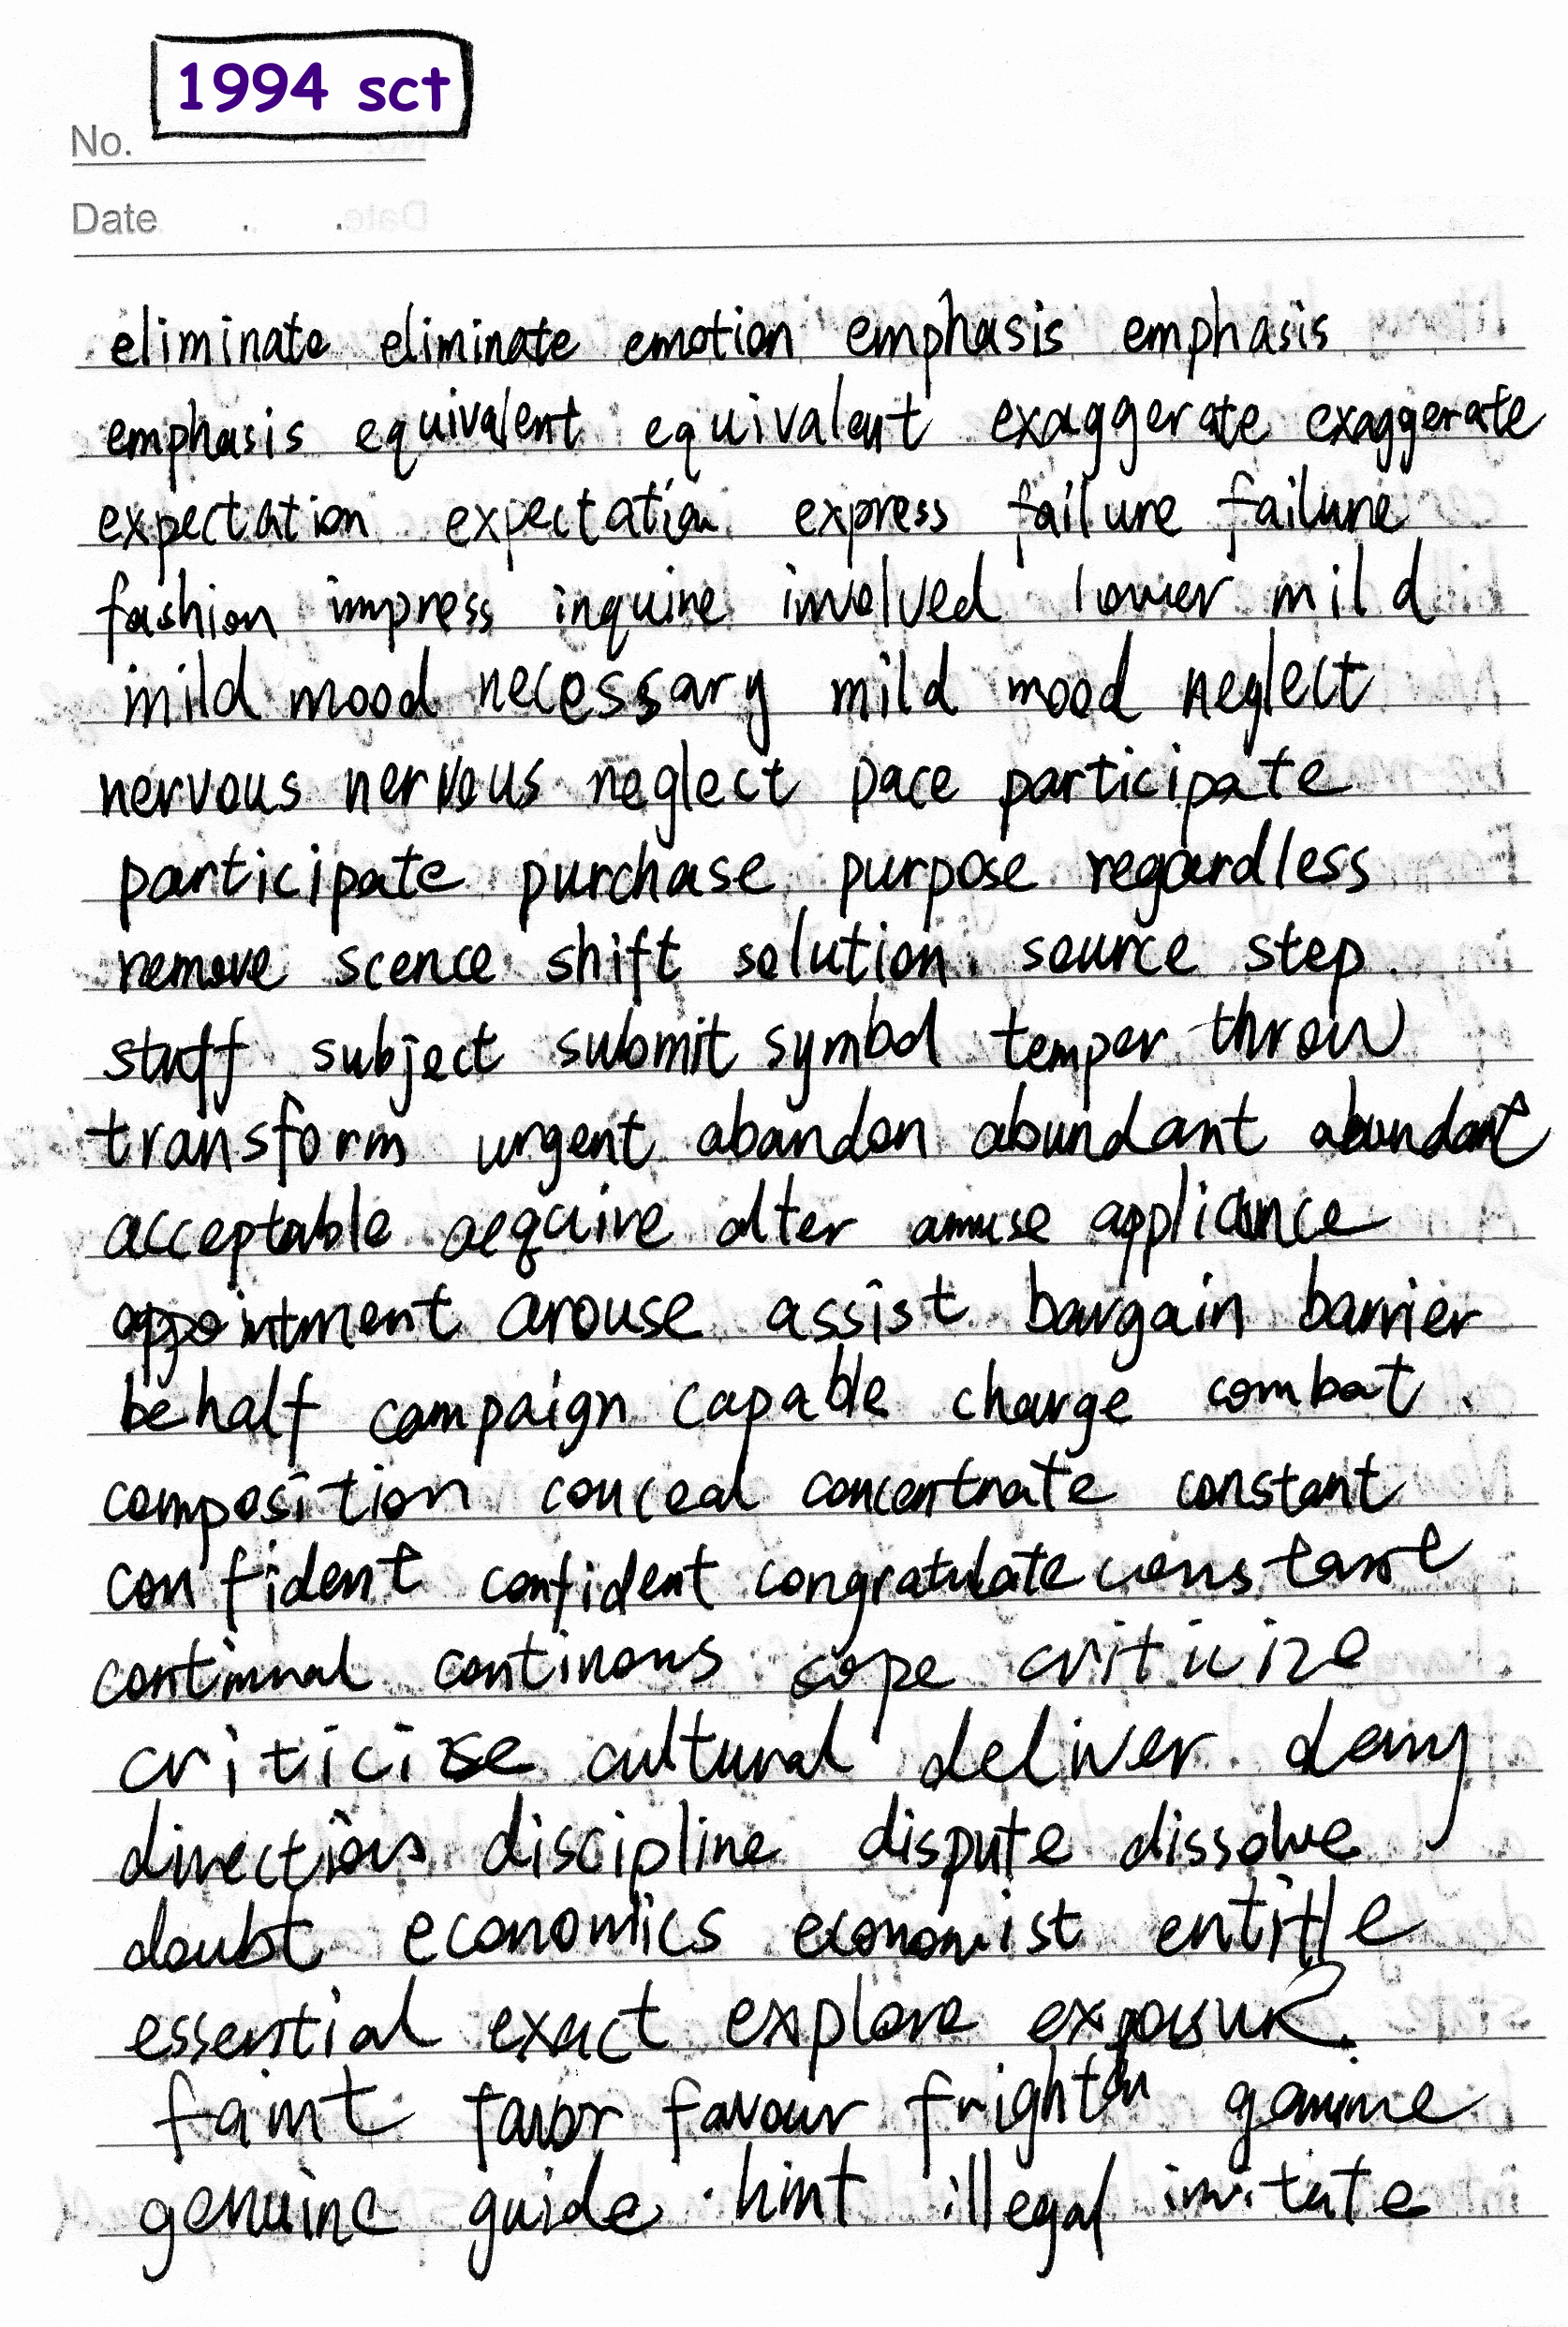 1994 sct
No.
Date . .
eliminate eliminate emotion emphasis emphasis
emphasis equivalent equivalent exaggerate exaggerate
expectation expectation express failure failure
fashion impress inquire involved lower mild
mild mood necessary mild mood neglect
nervous nervous neglect pace participate
participate purchase purpose regardless
remove scence shift solution source step
stuff subject submit symbol temper throw
transform urgent abandon abundant abundant
acceptable acquire alter amuse appliance
appointment arouse assist bargain barrier
behalf campaign capable charge combat
composition conceal concentrate constant
confident confident congratulate constant
continual continous cope criticize
criticise cultural deliver deny
directions discipline dispute dissolve
doubt economics economist entitle
essential exact explore exposure
faint favor favour frighten genuine
genuine guide hint illegal imitate